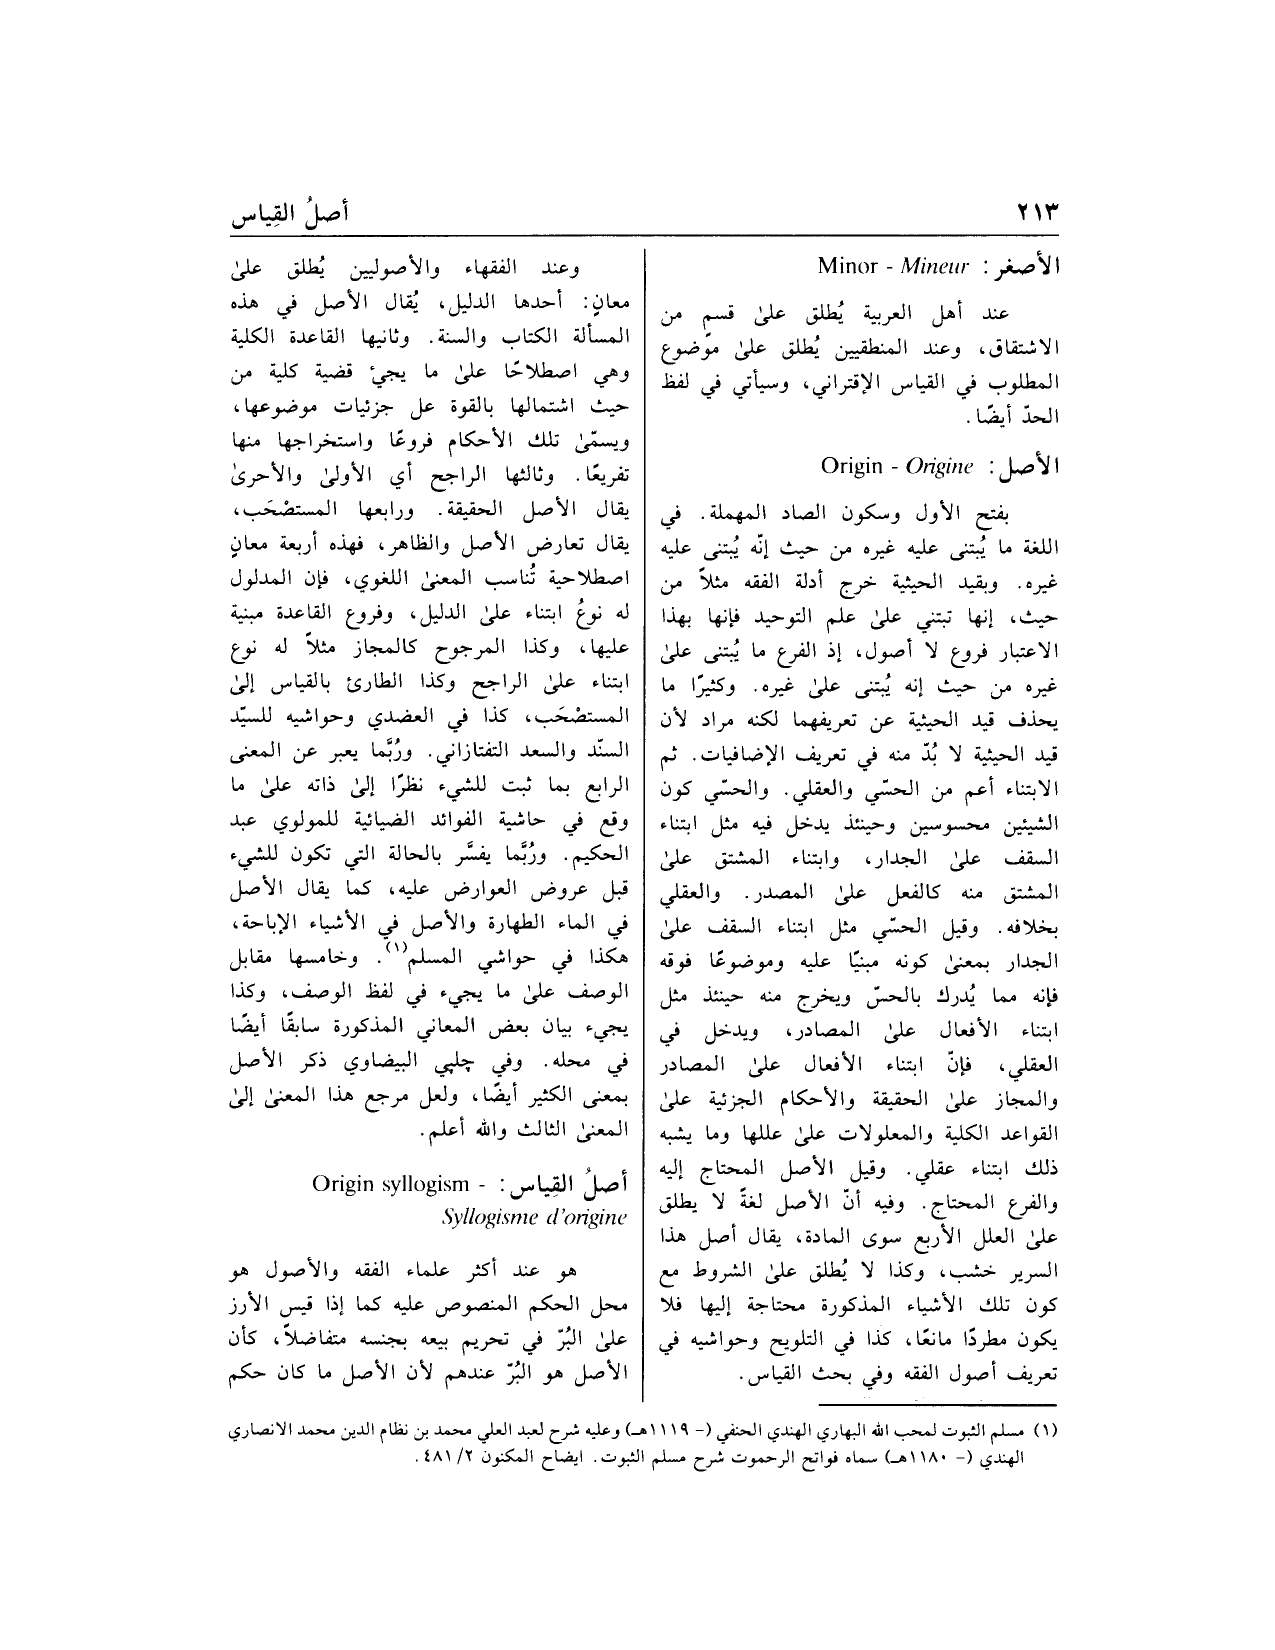 ٢١٣
أصلُ القِياس
الأصغر : Minor - Mineur
عند أهل العربية يُطلق علىٰ قسم من
الاشتقاق، وعند المنطقيين يُطلق علىٰ موضوع
المطلوب في القياس الإقتراني، وسيأتي في لفظ
الحدّ أيضًا.
الأصل : Origin - Origine
بفتح الأول وسكون الصاد المهملة. في
اللغة ما يُبتنى عليه غيره من حيث إنّه يُبتنى عليه
غيره. وبقيد الحيثية خرج أدلة الفقه مثلاً من
حيث، إنها تبتني علىٰ علم التوحيد فإنها بهذا
الاعتبار فروع لا أصول، إذ الفرع ما يُبتنى علىٰ
غيره من حيث إنه يُبتنى علىٰ غيره. وكثيرًا ما
يحذف قيد الحيثية عن تعريفهما لكنه مراد لأن
قيد الحيثية لا بُدّ منه في تعريف الإضافيات. ثم
الابتناء أعم من الحسّي والعقلي. والحسّي كون
الشيئين محسوسين وحينئذ يدخل فيه مثل ابتناء
السقف علىٰ الجدار، وابتناء المشتق علىٰ
المشتق منه كالفعل علىٰ المصدر. والعقلي
بخلافه. وقيل الحسّي مثل ابتناء السقف علىٰ
الجدار بمعنىٰ كونه مبنيًا عليه وموضوعًا فوقه
فإنه مما يُدرك بالحسّ ويخرج منه حينئذ مثل
ابتناء الأفعال علىٰ المصادر، ويدخل في
العقلي، فإنّ ابتناء الأفعال علىٰ المصادر
والمجاز علىٰ الحقيقة والأحكام الجزئية علىٰ
القواعد الكلية والمعلولات علىٰ عللها وما يشبه
ذلك ابتناء عقلي. وقيل الأصل المحتاج إليه
والفرع المحتاج. وفيه أنّ الأصل لغةً لا يطلق
علىٰ العلل الأربع سوى المادة، يقال أصل هذا
السرير خشب، وكذا لا يُطلق علىٰ الشروط مع
كون تلك الأشياء المذكورة محتاجة إليها فلا
يكون مطردًا مانعًا، كذا في التلويح وحواشيه في
تعريف أصول الفقه وفي بحث القياس.
وعند الفقهاء والأصوليين يُطلق علىٰ
معانٍ: أحدها الدليل، يُقال الأصل في هذه
المسألة الكتاب والسنة. وثانيها القاعدة الكلية
وهي اصطلاحًا علىٰ ما يجيئ قضية كلية من
حيث اشتمالها بالقوة عل جزئيات موضوعها،
ويسمّىٰ تلك الأحكام فروعًا واستخراجها منها
تفريعًا. وثالثها الراجح أي الأولىٰ والأحرىٰ
يقال الأصل الحقيقة. ورابعها المستصْحَب،
يقال تعارض الأصل والظاهر، فهذه أربعة معانٍ
اصطلاحية تُناسب المعنىٰ اللغوي، فإن المدلول
له نوعُ ابتناء علىٰ الدليل، وفروع القاعدة مبنية
عليها، وكذا المرجوح كالمجاز مثلاً له نوع
ابتناء علىٰ الراجح وكذا الطارئ بالقياس إلىٰ
المستصْحَب، كذا في العضدي وحواشيه للسيّد
السنّد والسعد التفتازاني. ورُبَّما يعبر عن المعنى
الرابع بما ثبت للشيء نظرًا إلىٰ ذاته علىٰ ما
وقع في حاشية الفوائد الضيائية للمولوي عبد
الحكيم. ورُبَّما يفسَّر بالحالة التي تكون للشيء
قبل عروض العوارض عليه، كما يقال الأصل
في الماء الطهارة والأصل في الأشياء الإباحة،
هكذا في حواشي المسلم(١). وخامسها مقابل
الوصف علىٰ ما يجيء في لفظ الوصف، وكذا
يجيء بيان بعض المعاني المذكورة سابقًا أيضًا
في محله. وفي چلپي البيضاوي ذكر الأصل
بمعنى الكثير أيضًا، ولعل مرجع هذا المعنىٰ إلىٰ
المعنىٰ الثالث والله أعلم.
أصلُ القِياس : Origin syllogism -
Syllogisme d'origine
هو عند أكثر علماء الفقه والأصول هو
محل الحكم المنصوص عليه كما إذا قيس الأرز
علىٰ البُرّ في تحريم بيعه بجنسه متفاضلاً، كأن
الأصل هو البُرّ عندهم لأن الأصل ما كان حكم
(١) مسلم الثبوت لمحب الله البهاري الهندي الحنفي (- ١١١٩هـ) وعليه شرح لعبد العلي محمد بن نظام الدين محمد الانصاري
الهندي (- ١١٨٠هـ) سماه فواتح الرحموت شرح مسلم الثبوت. ايضاح المكنون ٢/ ٤٨١.